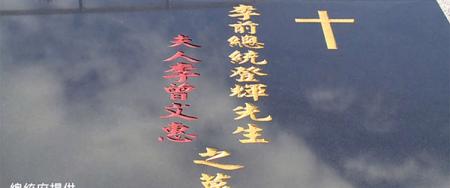 李前總統登輝先生
夫人李曾文惠
之墓
總統府提供